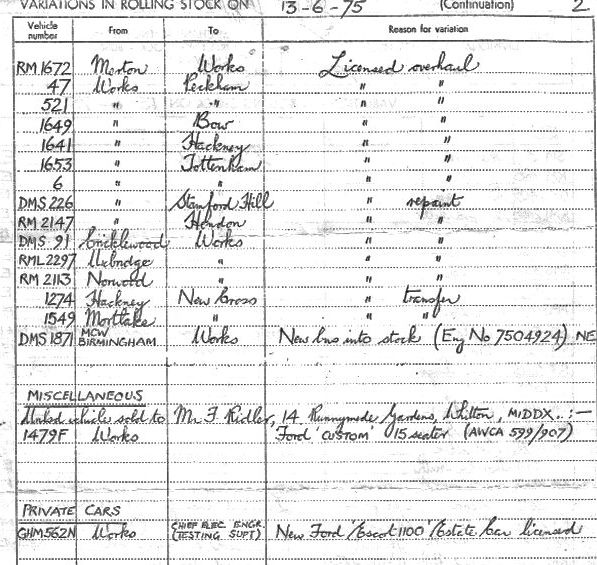 VARIATIONS IN ROLLING STOCK ON 13-6-75 (Continuation) 2
Vehicle number From To Reason for variation
RM 1672 Merton Works Licensed overhaul
47 Works Peckham " "
521 " " " "
1649 " Bow " "
1641 " Hackney " "
1653 " Tottenham " "
6 " " " "
DMS 226 " Stamford Hill " repaint
RM 2147 " Hendon " "
DMS 91 Cricklewood Works " "
RML 2297 Uxbridge " " "
RM 2113 Norwood " " "
1274 Hackney New Cross " transfer
1549 Mortlake " " "
DMS 1871 MCW BIRMINGHAM Works New bus into stock (Eng No 7504924) NE
MISCELLANEOUS
vehicle sold to Mr F Ridler, 14 Runnymede Gardens, Whitton, MIDDX.. :—
1479F Works 'Ford 'CUSTOM' 15 seater (AWCA 599/907)
PRIVATE CARS
GHM562N Works CHIEF ELEC. ENGR. (TESTING SUPT) New Ford 'Escort 1100' Estate Car licensed